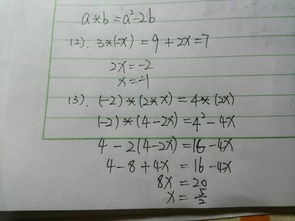 a*b=a²-2b
(2). 3*(-x)=9+2x=7
2x=-2
x=-1
(3). (-2)*(2*x)=4*(2x)
(-2)*(4-2x)=4²-4x
4-2(4-2x)=16-4x
4-8+4x=16-4x
8x=20
x=5/2